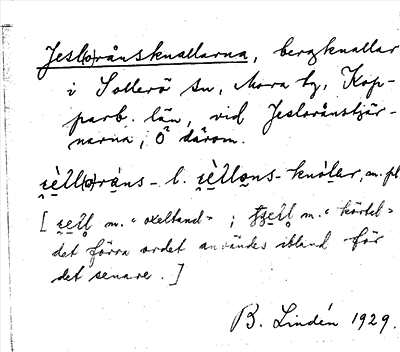 Jesl(o)rånsknallarna, bergknallar
i Sollerö sn, Mora tg, Kop-
parb. län, vid Jeslorånstjär-
narna, Ö därom.
l.
m. pl
[ m. "oxeltand" ; m. "körtel"
det förra ordet användes ibland för
det senare. ]
B. Lindén 1929.